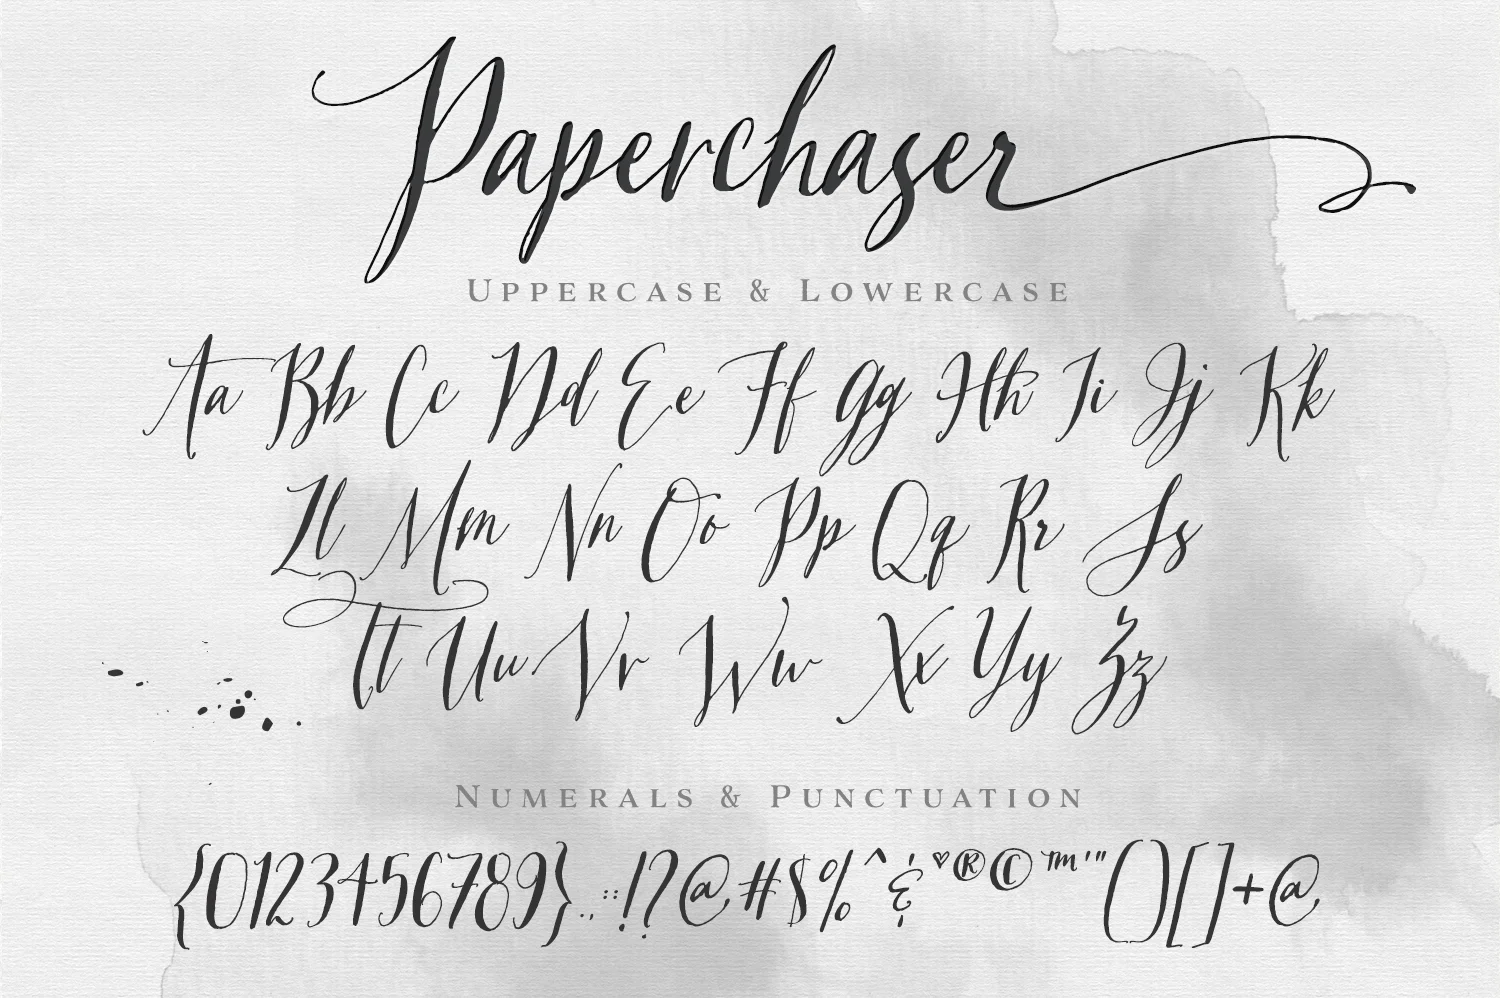 Paperchaser
Uppercase & Lowercase
Aa Bb Cc Dd Ee Ff Gg Hh Ii Jj Kk
Ll Mm Nn Oo Pp Qq Rr Ss
Tt Uu Vv Ww Xx Yy Zz
Numerals & Punctuation
{0123456789}.,:;!?@#$%^&♥®©™'"()[]+@